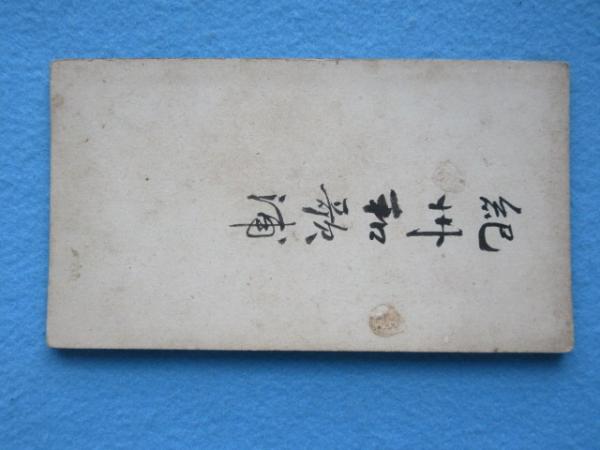 紀州和歌浦